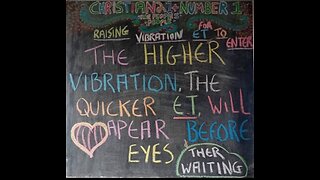 CHRISTIANA + NUMBER 1
THE PEOPLES
PEOPLE
RAISING VIBRATION FOR ET TO ENTER
THE HIGHER
VIBRATION, THE
QUICKER E.T, WILL
APEAR BEFORE
EYES
THER WAITING